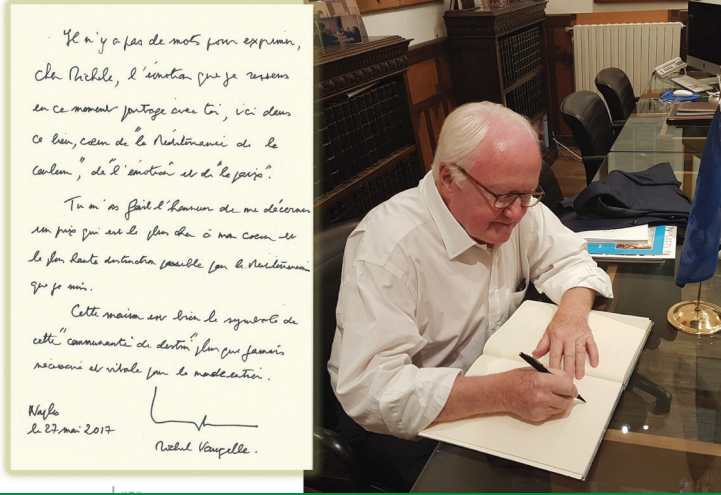 Il n'y a pas de mots pour exprimer,
cher Michele, l'émotion que je ressens
en ce moment partagé avec toi, ici dans
ce lieu, cœur de "la Méditerranée de la
couleur", de "l'émotion" et de "la paix".
Tu m'as fait l'honneur de me décerner
un prix qui est le plus cher à mon coeur et
la plus haute distinction possible pour le Méditerranéen
que je suis.
Cette maison est bien le symbole de
cette "communauté de destin" plus que jamais
nécessaire et vitale pour le monde entier.
Naples
le 27 mai 2017
Michel Vauzelle.